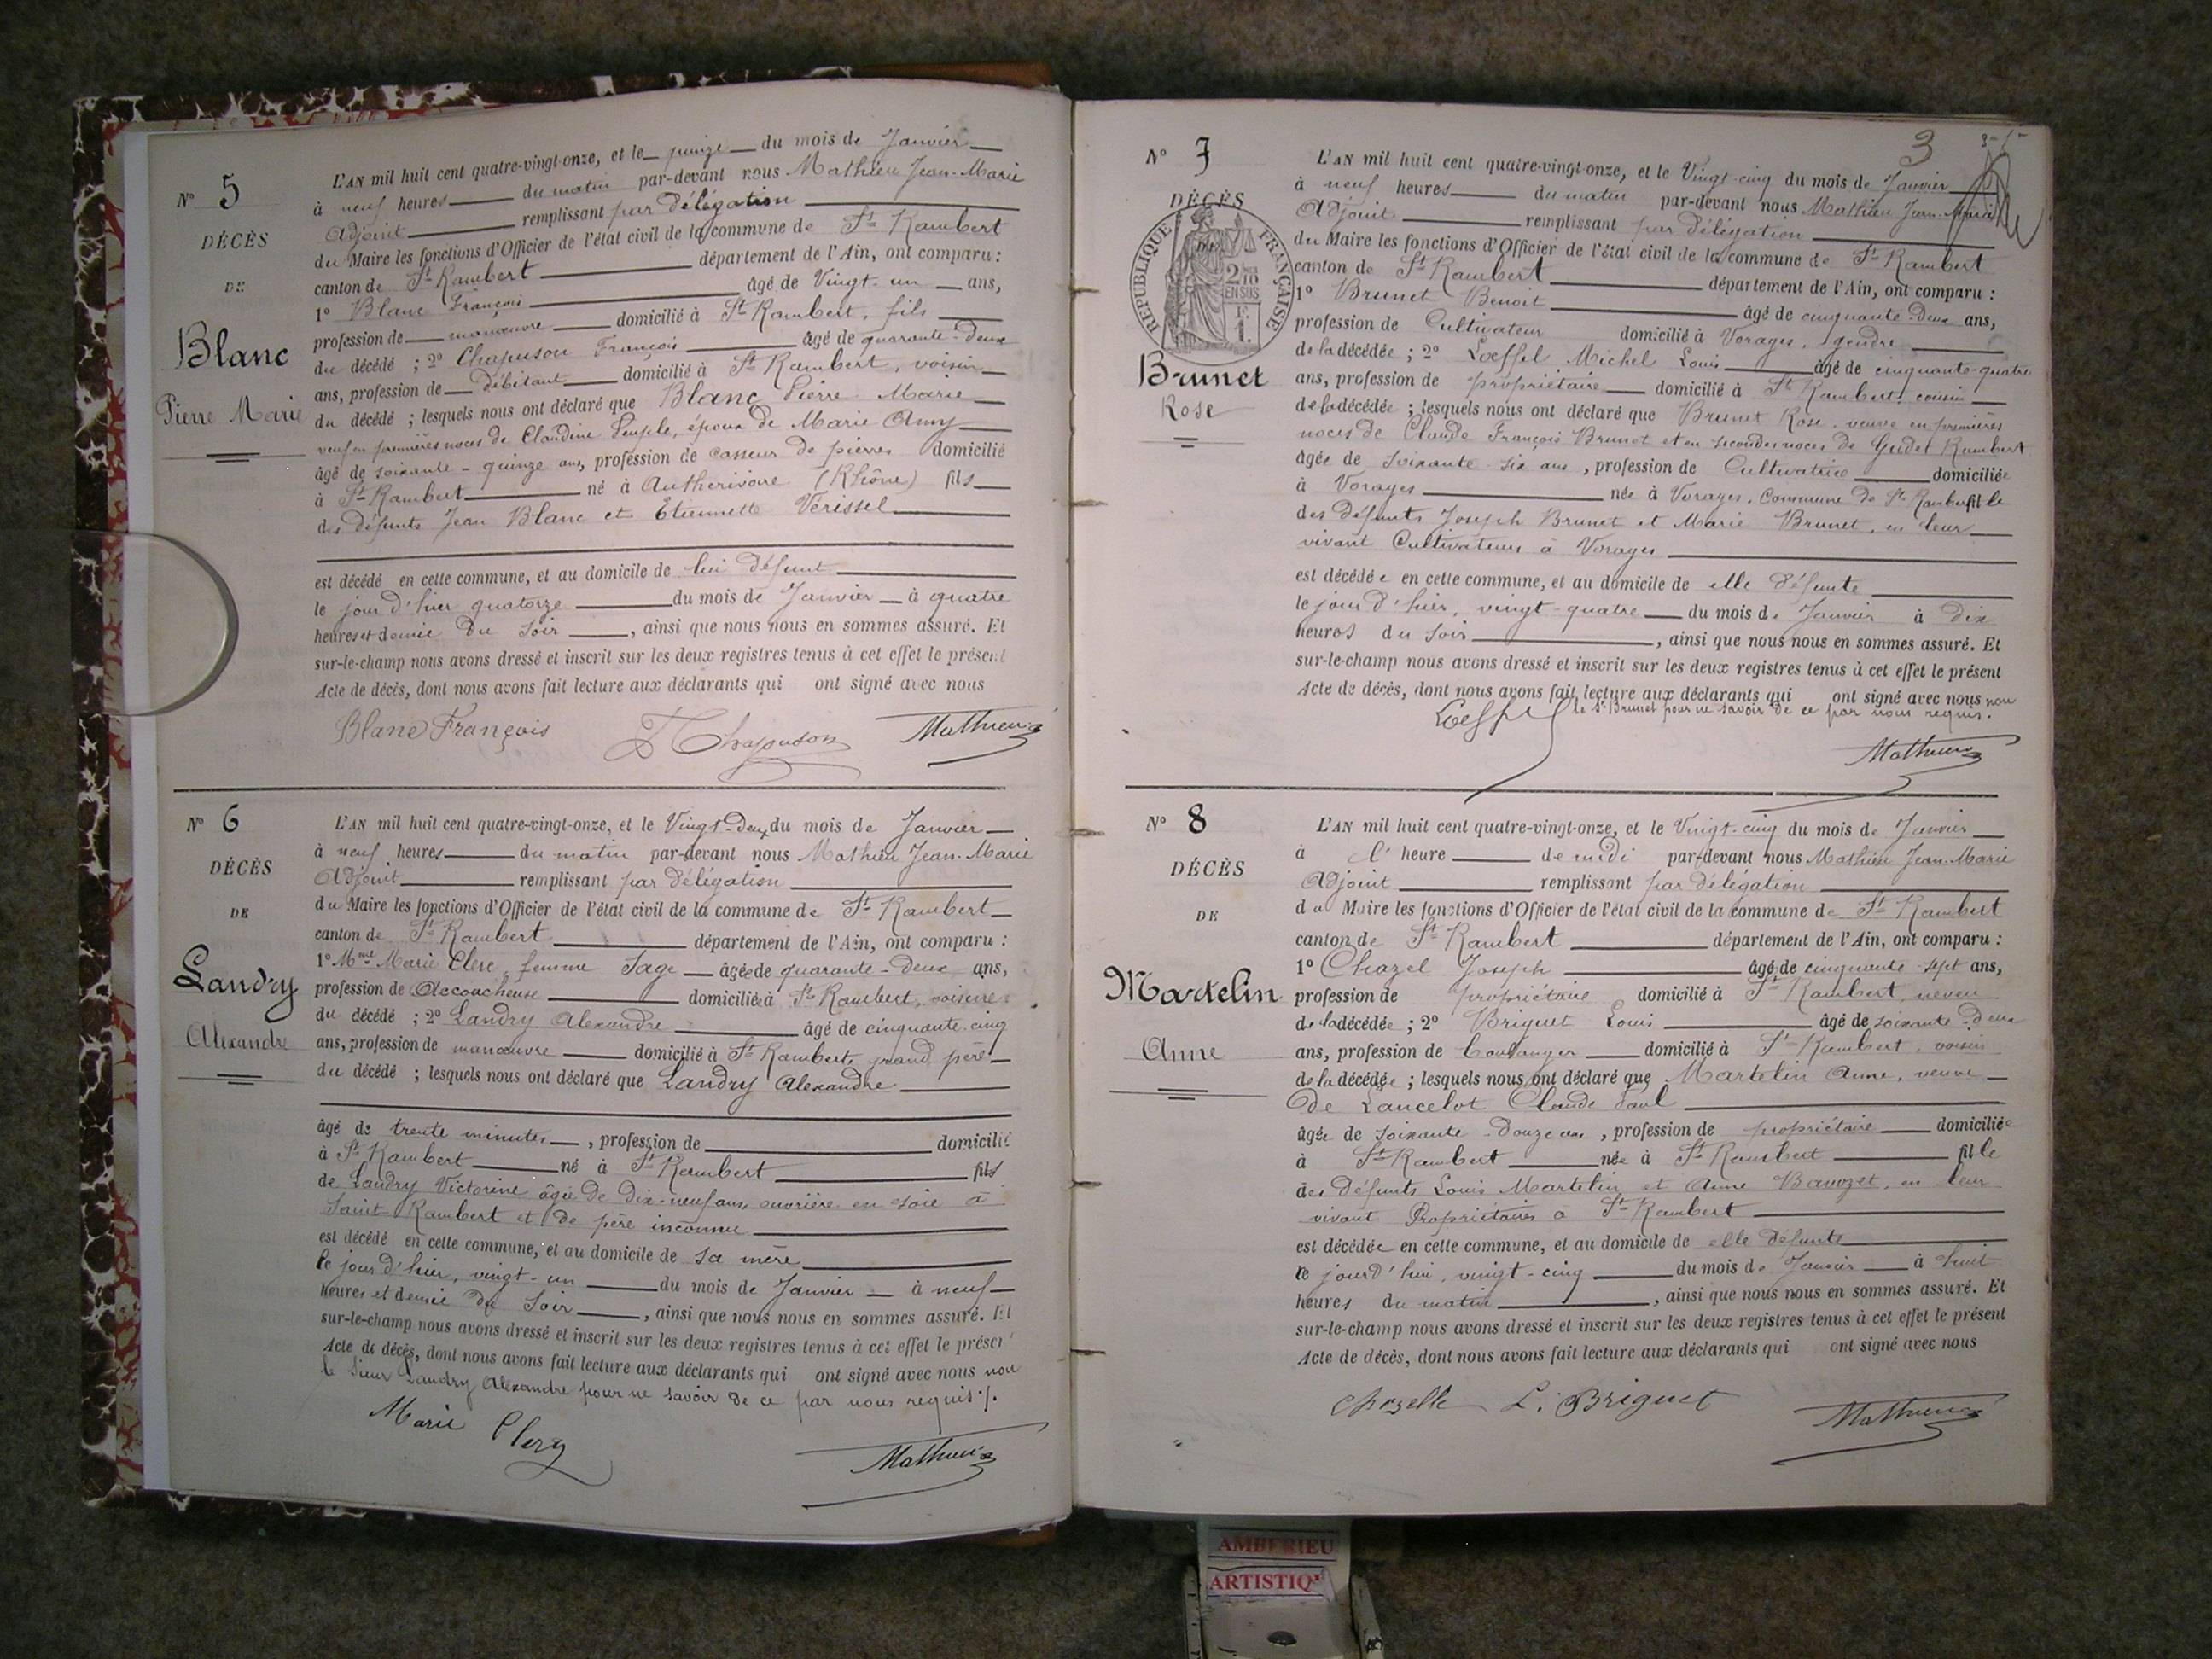 N° 5
DÉCÈS
DE
Blanc
Pierre Marie
L'AN mil huit cent quatre-vingt-onze, et le quinze du mois de Janvier
à neuf heures du matin par-devant nous Mathieu Jean-Marie
Adjoint remplissant par délégation
du Maire les fonctions d'Officier de l'état civil de la commune de St Rambert
canton de St Rambert département de l'Ain, ont comparu :
1° Blanc François âgé de Vingt-un ans,
profession de manœuvre domicilié à St Rambert, fils
du décédé ; 2° Chapuson François âgé de quarante-deux
ans, profession de débitant domicilié à St Rambert, voisin
du décédé ; lesquels nous ont déclaré que Blanc Pierre Marie
veuf en premières noces de Claudine époux de Marie Amy
âgé de soixante-quinze ans, profession de casseur de pierres domicilié
à St Rambert né à Autherivoire (Rhône) fils
des défunts Jean Blanc et Etiennette Vérissel
est décédé en cette commune, et au domicile de lui défunt
le jour d'hier quatorze du mois de Janvier à quatre
heures et demie du soir, ainsi que nous nous en sommes assuré. Et
sur-le-champ nous avons dressé et inscrit sur les deux registres tenus à cet effet le présent
Acte de décès, dont nous avons fait lecture aux déclarants qui ont signé avec nous
Blanc François Chapuson Mathieu
N° 6
DÉCÈS
DE
Landry
Alexandre
L'AN mil huit cent quatre-vingt-onze, et le Vingt-deux du mois de Janvier
à neuf heures du matin par-devant nous Mathieu Jean-Marie
Adjoint remplissant par délégation
du Maire les fonctions d'Officier de l'état civil de la commune de St Rambert
canton de St Rambert département de l'Ain, ont comparu :
1° Mme Marie Clerc femme Sage âgée de quarante-deux ans,
profession de Accoucheuse domiciliée à St Rambert, voisine
du décédé ; 2° Landry Alexandre âgé de cinquante-cinq
ans, profession de manœuvre domicilié à St Rambert, grand père
du décédé ; lesquels nous ont déclaré que Landry Alexandre
âgé de trente minutes, profession de domicilié
à St Rambert né à St Rambert fils
de Landry Victorine âgée de dix-neuf ans, ouvrière en soie à
Saint Rambert et de père inconnu
est décédé en cette commune, et au domicile de sa mère
le jour d'hier, vingt-un du mois de Janvier à neuf
heures et demie du soir, ainsi que nous nous en sommes assuré. Et
sur-le-champ nous avons dressé et inscrit sur les deux registres tenus à cet effet le présent
Acte de décès, dont nous avons fait lecture aux déclarants qui ont signé avec nous non
le Sieur Landry Alexandre pour ne savoir de ce par nous requis ./.
Marie Clerg
Mathieu
3
N° 7
DÉCÈS
DE
RÉPUBLIQUE FRANÇAISE
2/10 EN SUS
1 F.
Brunet
Rose
L'AN mil huit cent quatre-vingt-onze, et le Vingt-cinq du mois de Janvier
à neuf heures du matin par-devant nous Mathieu Jean-Marie
Adjoint remplissant par délégation
du Maire les fonctions d'Officier de l'état civil de la commune de St Rambert
canton de St Rambert département de l'Ain, ont comparu :
1° Brunet Benoit âgé de cinquante-deux ans,
profession de Cultivateur domicilié à Vorages, gendre
de la décédée ; 2° Loeffel Michel Louis âgé de cinquante-quatre
ans, profession de propriétaire domicilié à St Rambert, cousin
de la décédée ; lesquels nous ont déclaré que Brunet Rose, veuve en premières
noces de Claude François Brunet et en secondes noces de Gudet Rambert
âgée de soixante-six ans, profession de Cultivatrice domiciliée
à Vorages née à Vorages, Commune de St Rambert fille
des défunts Joseph Brunet et Marie Brunet, en leur
vivant Cultivateurs à Vorages
est décédée en cette commune, et au domicile de elle défunte
le jour d'hier, vingt-quatre du mois de Janvier à dix
heures du soir, ainsi que nous nous en sommes assuré. Et
sur-le-champ nous avons dressé et inscrit sur les deux registres tenus à cet effet le présent
Acte de décès, dont nous avons fait lecture aux déclarants qui ont signé avec nous non
le Sr Brunet pour ne savoir de ce par nous requis.
Loeffel
Mathieu
N° 8
DÉCÈS
DE
Martelin
Anne
L'AN mil huit cent quatre-vingt-onze, et le Vingt-cinq du mois de Janvier
à l'heure de midi par-devant nous Mathieu Jean-Marie
Adjoint remplissant par délégation
du Maire les fonctions d'Officier de l'état civil de la commune de St Rambert
canton de St Rambert département de l'Ain, ont comparu :
1° Chazel Joseph âgé de cinquante-sept ans,
profession de propriétaire domicilié à St Rambert, neveu
de la décédée ; 2° Briguet Louis âgé de soixante-deux
ans, profession de boulanger domicilié à St Rambert, voisin
de la décédée ; lesquels nous ont déclaré que Martelin Anne, veuve
de Lancelot Claude Paul
âgée de soixante-douze ans, profession de propriétaire domiciliée
à St Rambert née à St Rambert fille
des défunts Louis Martelin et Anne Bavozet, en leur
vivant Propriétaires à St Rambert
est décédée en cette commune, et au domicile de elle défunte
le jourd'hui, vingt-cinq du mois de Janvier à huit
heures du matin, ainsi que nous nous en sommes assuré. Et
sur-le-champ nous avons dressé et inscrit sur les deux registres tenus à cet effet le présent
Acte de décès, dont nous avons fait lecture aux déclarants qui ont signé avec nous
Chazelle L. Briguet Mathieu
AMBERIEU
ARTISTIQ